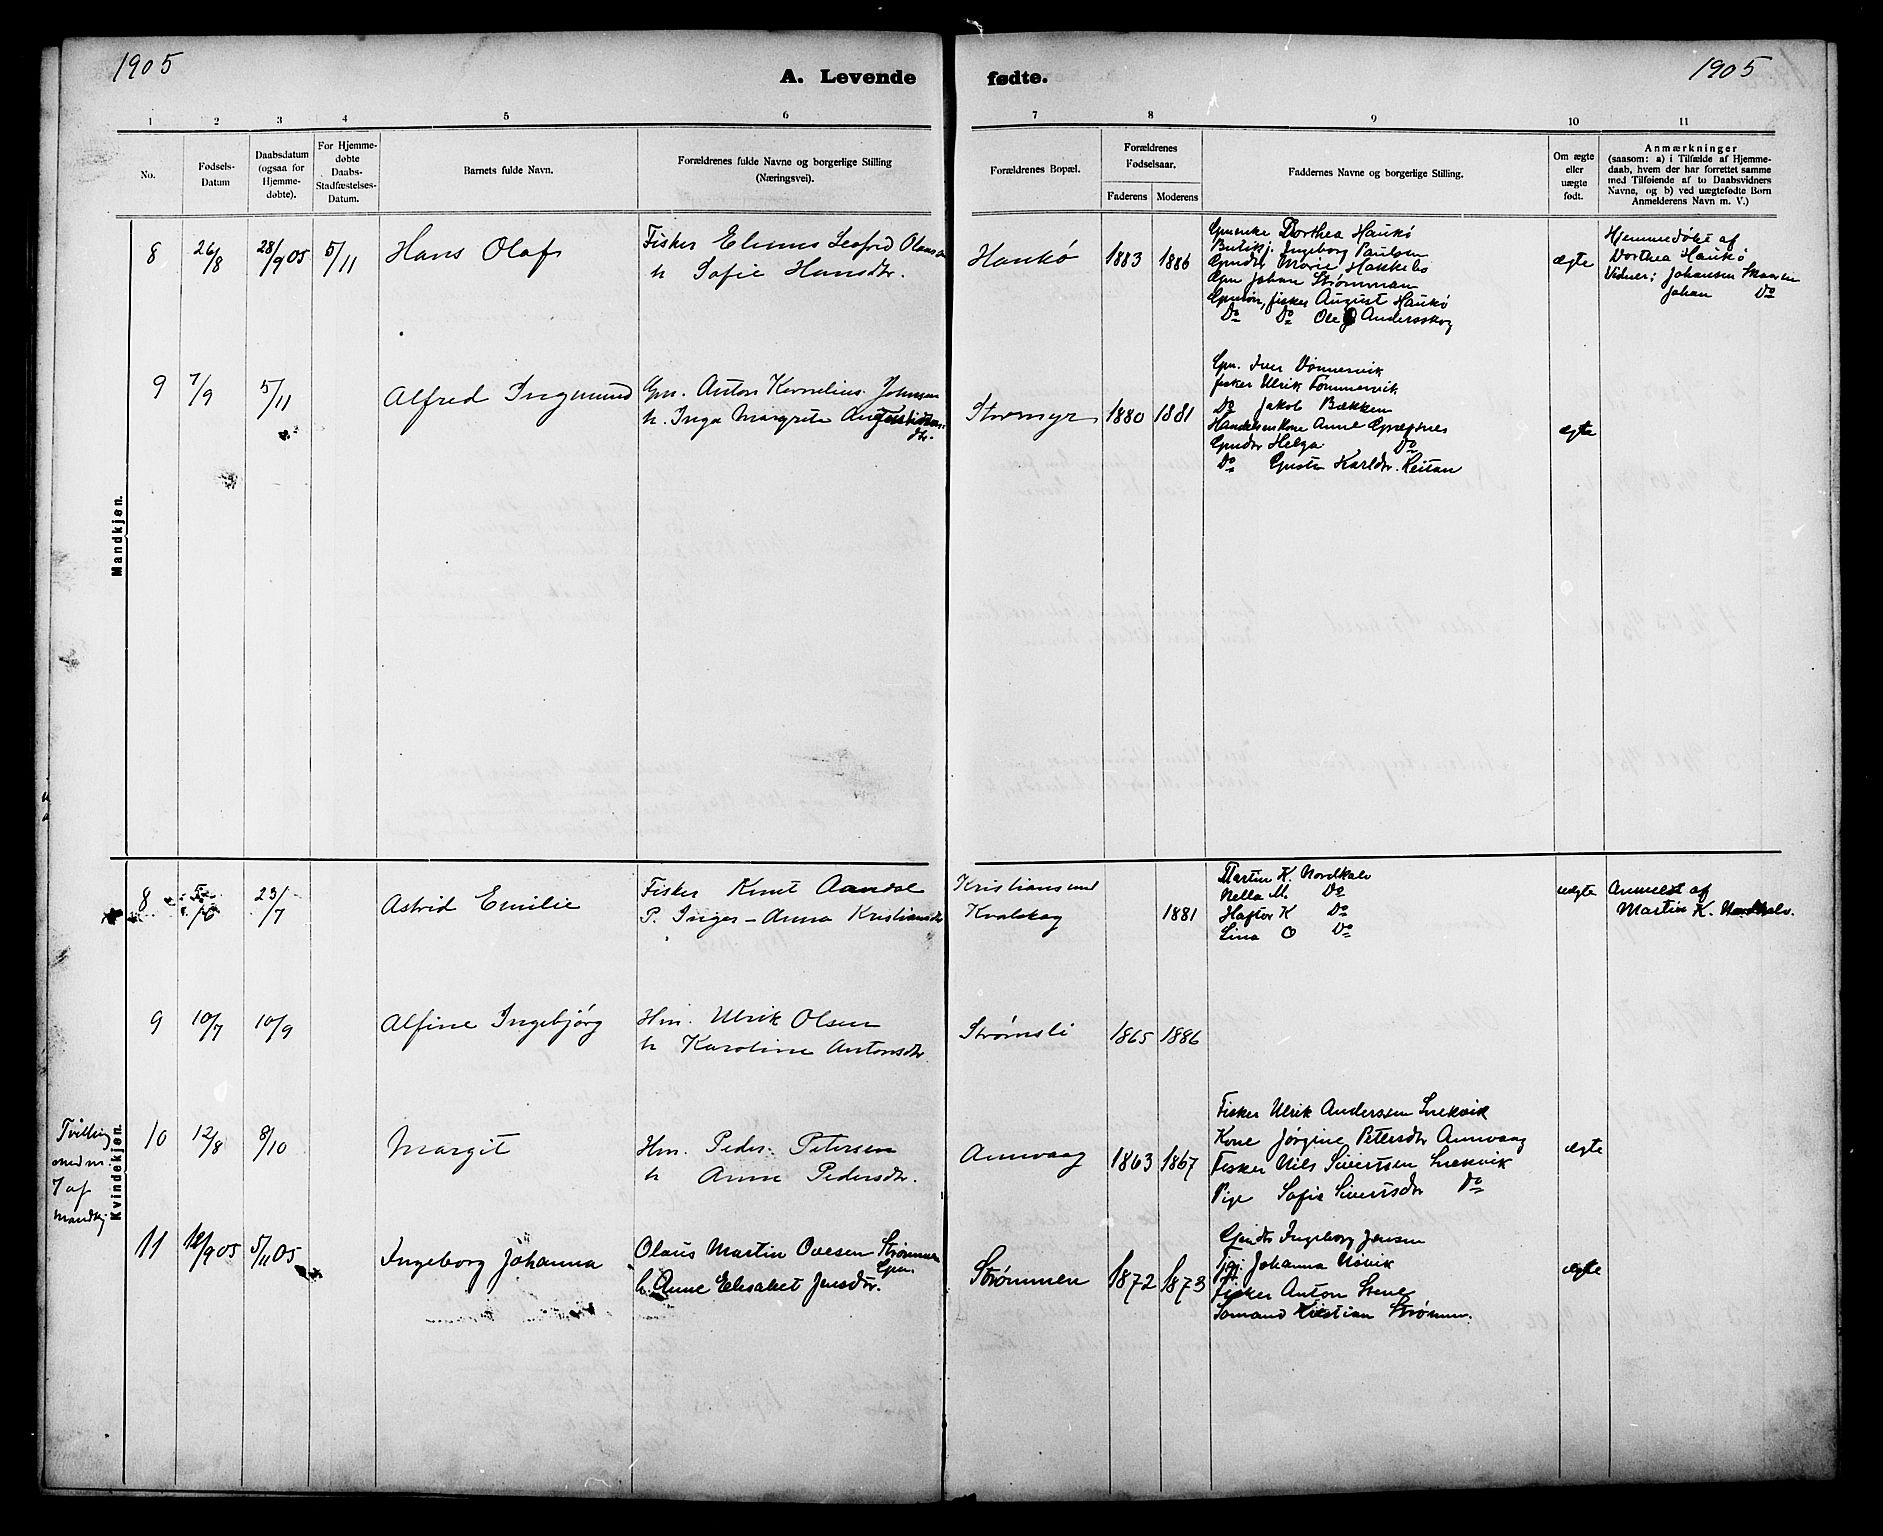 1905
A. Levende fødte.
1905
1 2 3 4 5 6 7 8 9 10 11
No.
Fødsels-
Datum
Daabsdatum
(ogsaa for
Hjemme-
døbte).
For Hjemme-
døbte
Daabs-
Stadfæstelses-
Datum.
Barnets fulde Navn.
Forældrenes fulde Navne og borgerlige Stilling
(Næringsvei).
Forældrenes Bopæl.
Forældrenes
Fødselsaar.
Faderens Moderens
Faddernes Navne og borgerlige Stilling.
Om ægte
eller
uægte
født.
Anmærkninger
(saasom: a) i Tilfælde af Hjemme-
daab, hvem der har forrettet samme
med Tilføiende af to Daabsvidners
Navne, og b) ved uægtefødte Børn
Anmelderens Navn m. V.)
Mandkjøn.
8 26/8 28/9 05 5/11 Hans Olaf
Fisker
h Sofie Hansdtr.
Haukø 1883 1886
Dorthea Haukø
Ingeborg Paulsen
Marie
Gm Johan Strømman
fisker August Haukø
Do Do Ole J Andersskog
ægte
Hjemmedøbt af
Dorthea Haukø
Vidner: Johansen
Johan Do
9 7/9 5/11 Alfred Ingmund
Gm. Anton Kornelius Johnsen
h. Inga Margrete
dtr.
Stormyr 1880 1881
Gm. Iver
fisker Ulrik
Do Jakob Bækken
Anne
Helga Do
Do Karldtr. Reitan
ægte
Kvindekjøn.
8 23/7 Astrid Emilie
Fisker Knut Aandal
P. Inger-Anna Kristiansdtr
Kristiansund
Kvalskag 1881
Martin K. Nordkalv
Nella M. Do
Haftor K Do
Lina O Do
uægte
Anmeldt af
Martin K. Nordkalv.
9 10/7 10/9 Alfine Ingebjørg
Hm. Ulrik Olsen
h Karoline Antonsdtr
Strømsli 1865 1886
Tvilling
med nr.
7 af
mandkj
10 12/8 8/10 Margit
Hm. Peder Petersen
h Anne Pedersdtr.
Annvaag 1863 1867
Fisker Ulrik Andersen Snekvik
Kone Jørgine Petersdtr Annvaag
Fisker Nils Sivertsen Snekvik
Pige Sofie Sivertsdtr Do
ægte
11 /9 05 5/11 05 Ingeborg Johanna
Olaus Martin Ovesen Strømmen
Gm.
h. Anne Elisabet Jensdtr.
Strømmen 1872 1873
Ingeborg Jensen
Johanna
Fisker Anton
Kristian Strømm.
ægte